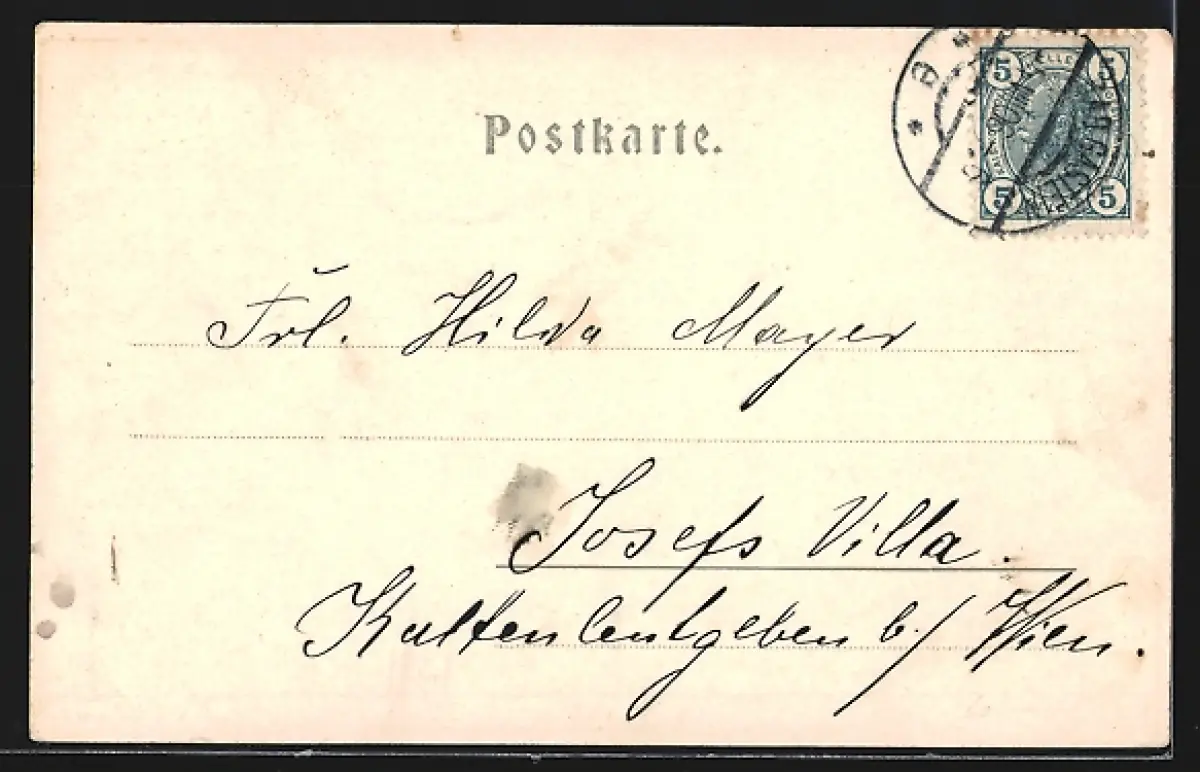 Postkarte.
5 5
5 5
Frl. Hilda Mayer
Josefs Villa.
Kaltenleutgeben b./ Wien.